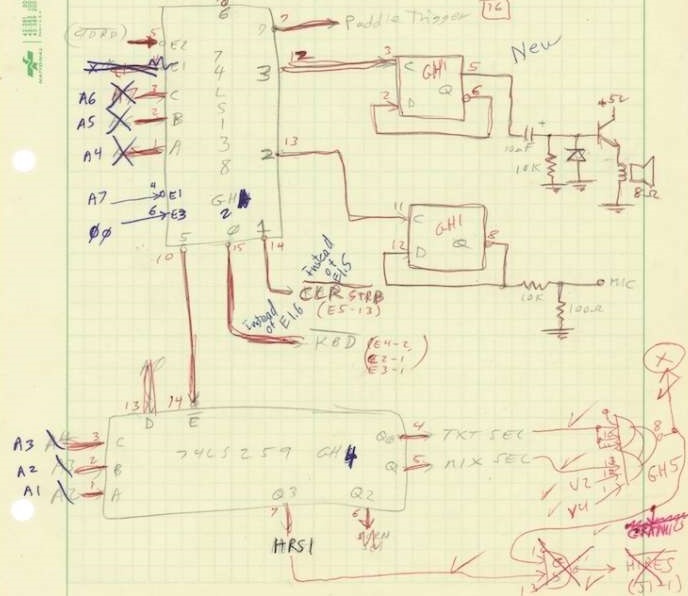 16
New
7 Paddle Trigger
6
5 E2
7
4
L
S
1
3
8
GH
2
E1
A6 3 C
A5 2 B
A4 1 A
A7 4 E1
φφ 6 E3
3 12
2 13
5 φ 1
10 15 14
3 C GH1 5
2 D Q 6
11 C GH1
12 D Q 8
10K
+5V
8Ω
10K
MIC
100Ω
instead of E1.5
CLR STRB
(E5-13)
instead of E1.6
KBD
(E4-2
E2-1
E3-1)
13 14
D E
A3 3 C
A2 2 B
A1 1 A
74LS259 GH4
4 TXT SEL
5 MIX SEL
Q3 Q2
7 6
HRS1
V2
V4
8
GH5
X
GRAPHICS
HIRES
(J1-1)